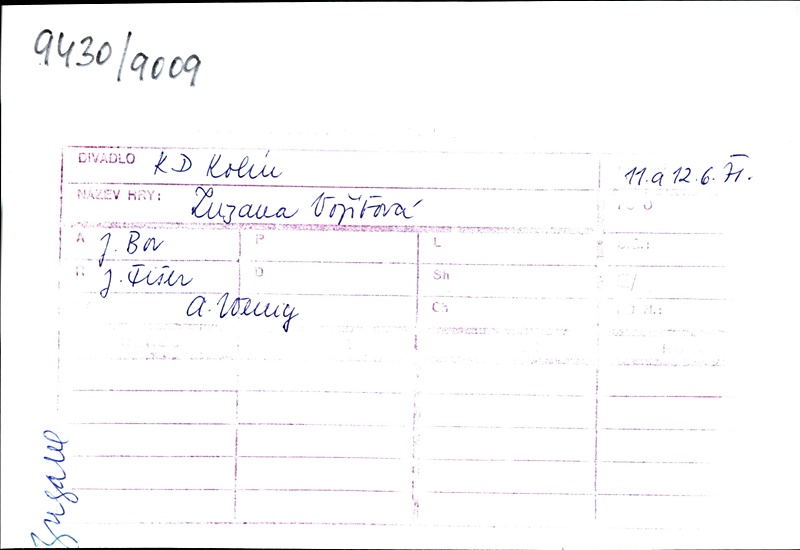 9430/9009
DIVADLO KD Kolín 11. a 12. 6. 71.
NÁZEV HRY: Zuzana Vojířová
A J. Bor P L
R J. Fišer D Sh
Ch